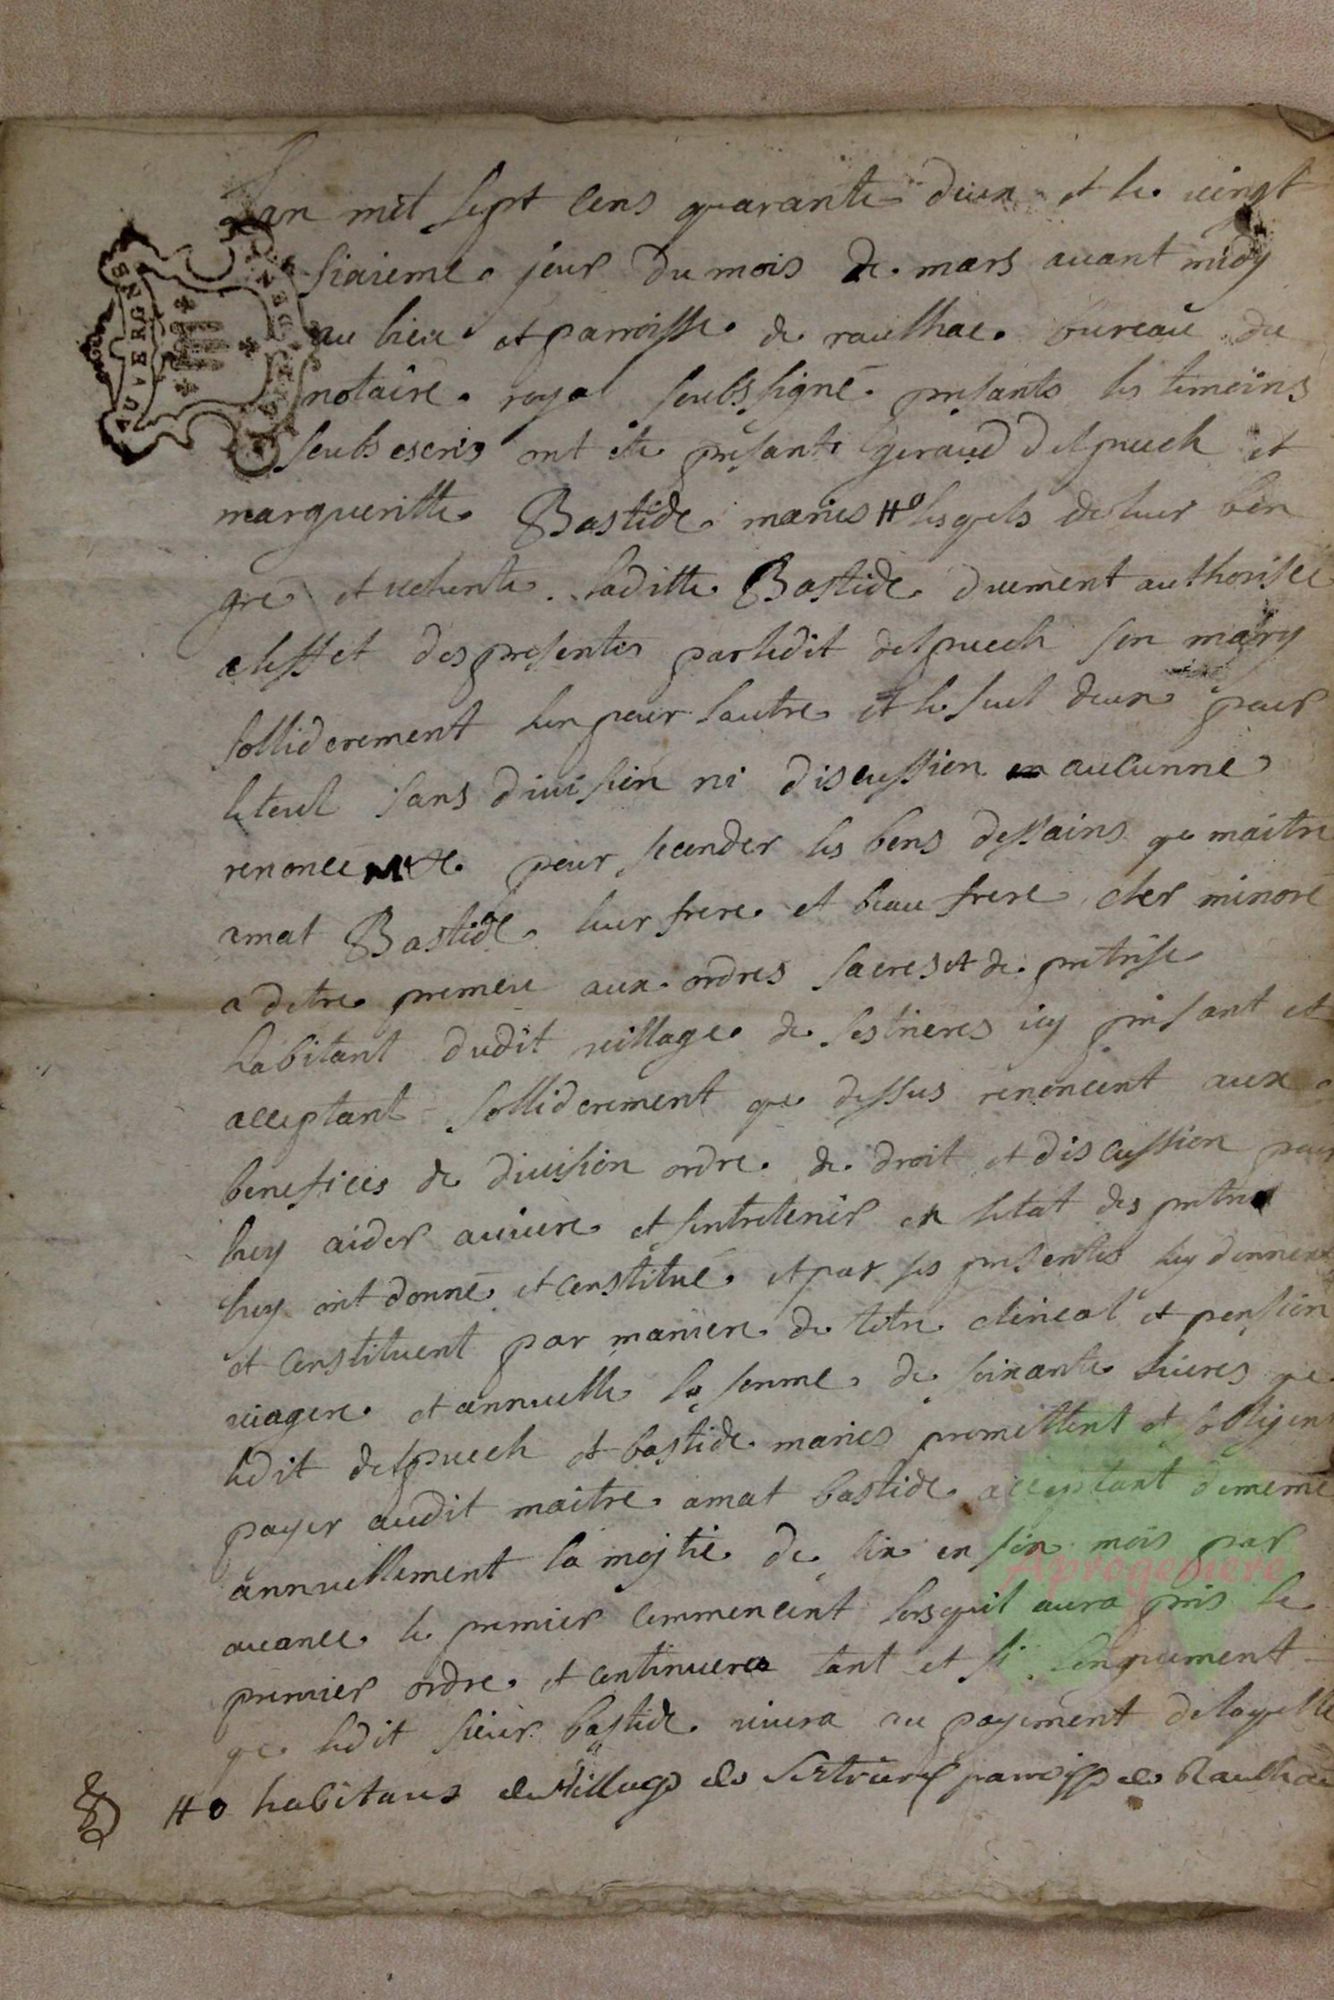 Lan mil sept cens quarante deux et le vingt
sixieme jour du mois de mars avant midy
au lieu et parroisse de raulhac bureau du
notaire royal soubssigné presants les temoins
soubsescris ont été présants geraud delpuech et
margueritte Bastide mariés #o lesquels de leur bon
gré et volunté laditte Bastide duement authorisée
a leffet des presentes par ledit delpuech son mary
sollidairement lun pour lautre et le seul deux pour
le toul sans division ni discussion aucunne
renonce pour seconder les bons dessains qe maitre
amat Bastide leur frere et beau frere cler minoré
a detre promeu aux ordres sacres et de pretrise
habitant dudit village de sestrieres icy presant et
acceptant solliderement qe dessus renoncent aux
benefices de division ordre de droit et discussion pour
luy aider avivre et sentretenir en letat des pretre
luy ont donné et constitué et par ses presentes luy donnent
et constituent par maniere de titre clerical et pension
viagere et annuelle la somme de soixante livres qe
ledit delpuech et bastide mariés promettent et sobligent
payer audit maitre amat bastide acceptant de meme
annuellement la mojtié de six en six mois par
avance le premier commencent lorsquil aura pris le
premier ordre et continuera tant et si longuement
qe ledit sieur bastide vivra au payement delaquelle
#o habitans du village de Sestrieres parroisse de Raulhac
AUVERGNE
Aprogemere